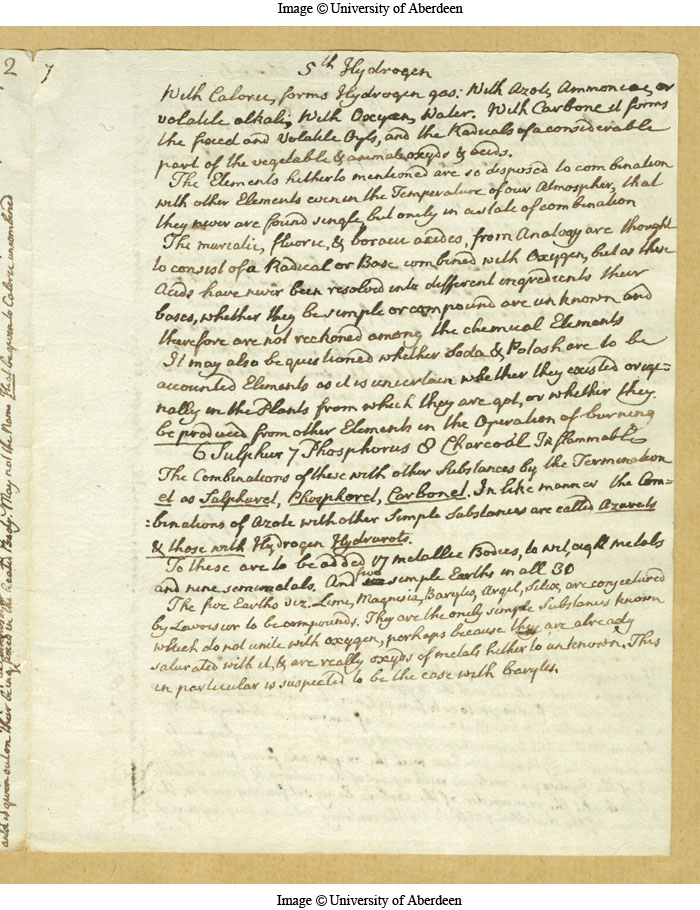 Image © University of Aberdeen
2
7
5th Hydrogen
With Caloric, forms Hydrogen gas: With Azote, Ammoniac, or
volatile alkali; With Oxygen, Water. With Carbone it forms
the fixed and volatile Oyls, and the Radicals of a considerable
part of the vegetable & animal oxyds & acids.
The Elements hitherto mentioned are so disposed to combination
with other Elements even in the Temperature of our Atmosphere, that
they never are found single, but onely in a state of combination
The muriatic, fluoric, & boracic acides, from Analogy are thought
to consist of a Radical or Base combined with Oxygen, but as these
Acids have never been resolved into different ingredients their
bases, whether they be simple or compound are unknown and
therefore are not reckoned among the chemical Elements
It may also be questioned whether Soda & Potash are to be
accounted Elements as it is uncertain whether they existed origi=
nally in the Plants from which they are got, or whether they
be produced from other Elements in the Operation of burning
6 Sulphur 7 Phosphorus 8 Charcoal Inflammable
The Combinations of these with other Substances by the Termination
et as Sulphuret, Phosphoret, Carbonet. In like manner the Com=
:binations of Azote with other Simple Substances are called Azurets
& those with Hydrogen Hydrurets.
To these are to be added 17 metallic Bodies, to wit, eight metals
and nine semimetals. And five simple Earths in all 30
The five Earths viz. Lime, Magnesia, Barytes, Argil, Silex, are conjectured
by Lavoisier to be compounds. They are the onely simple Substances known
which do not unite with oxygen, perhaps because they are already
saturated with it, & are really oxyds of metals hitherto unknown. This
in particular is suspected to be the case with barytes.
given out on their being fixed in the heated Body. May not the Name that be given to Caloric uncombined
Image © University of Aberdeen